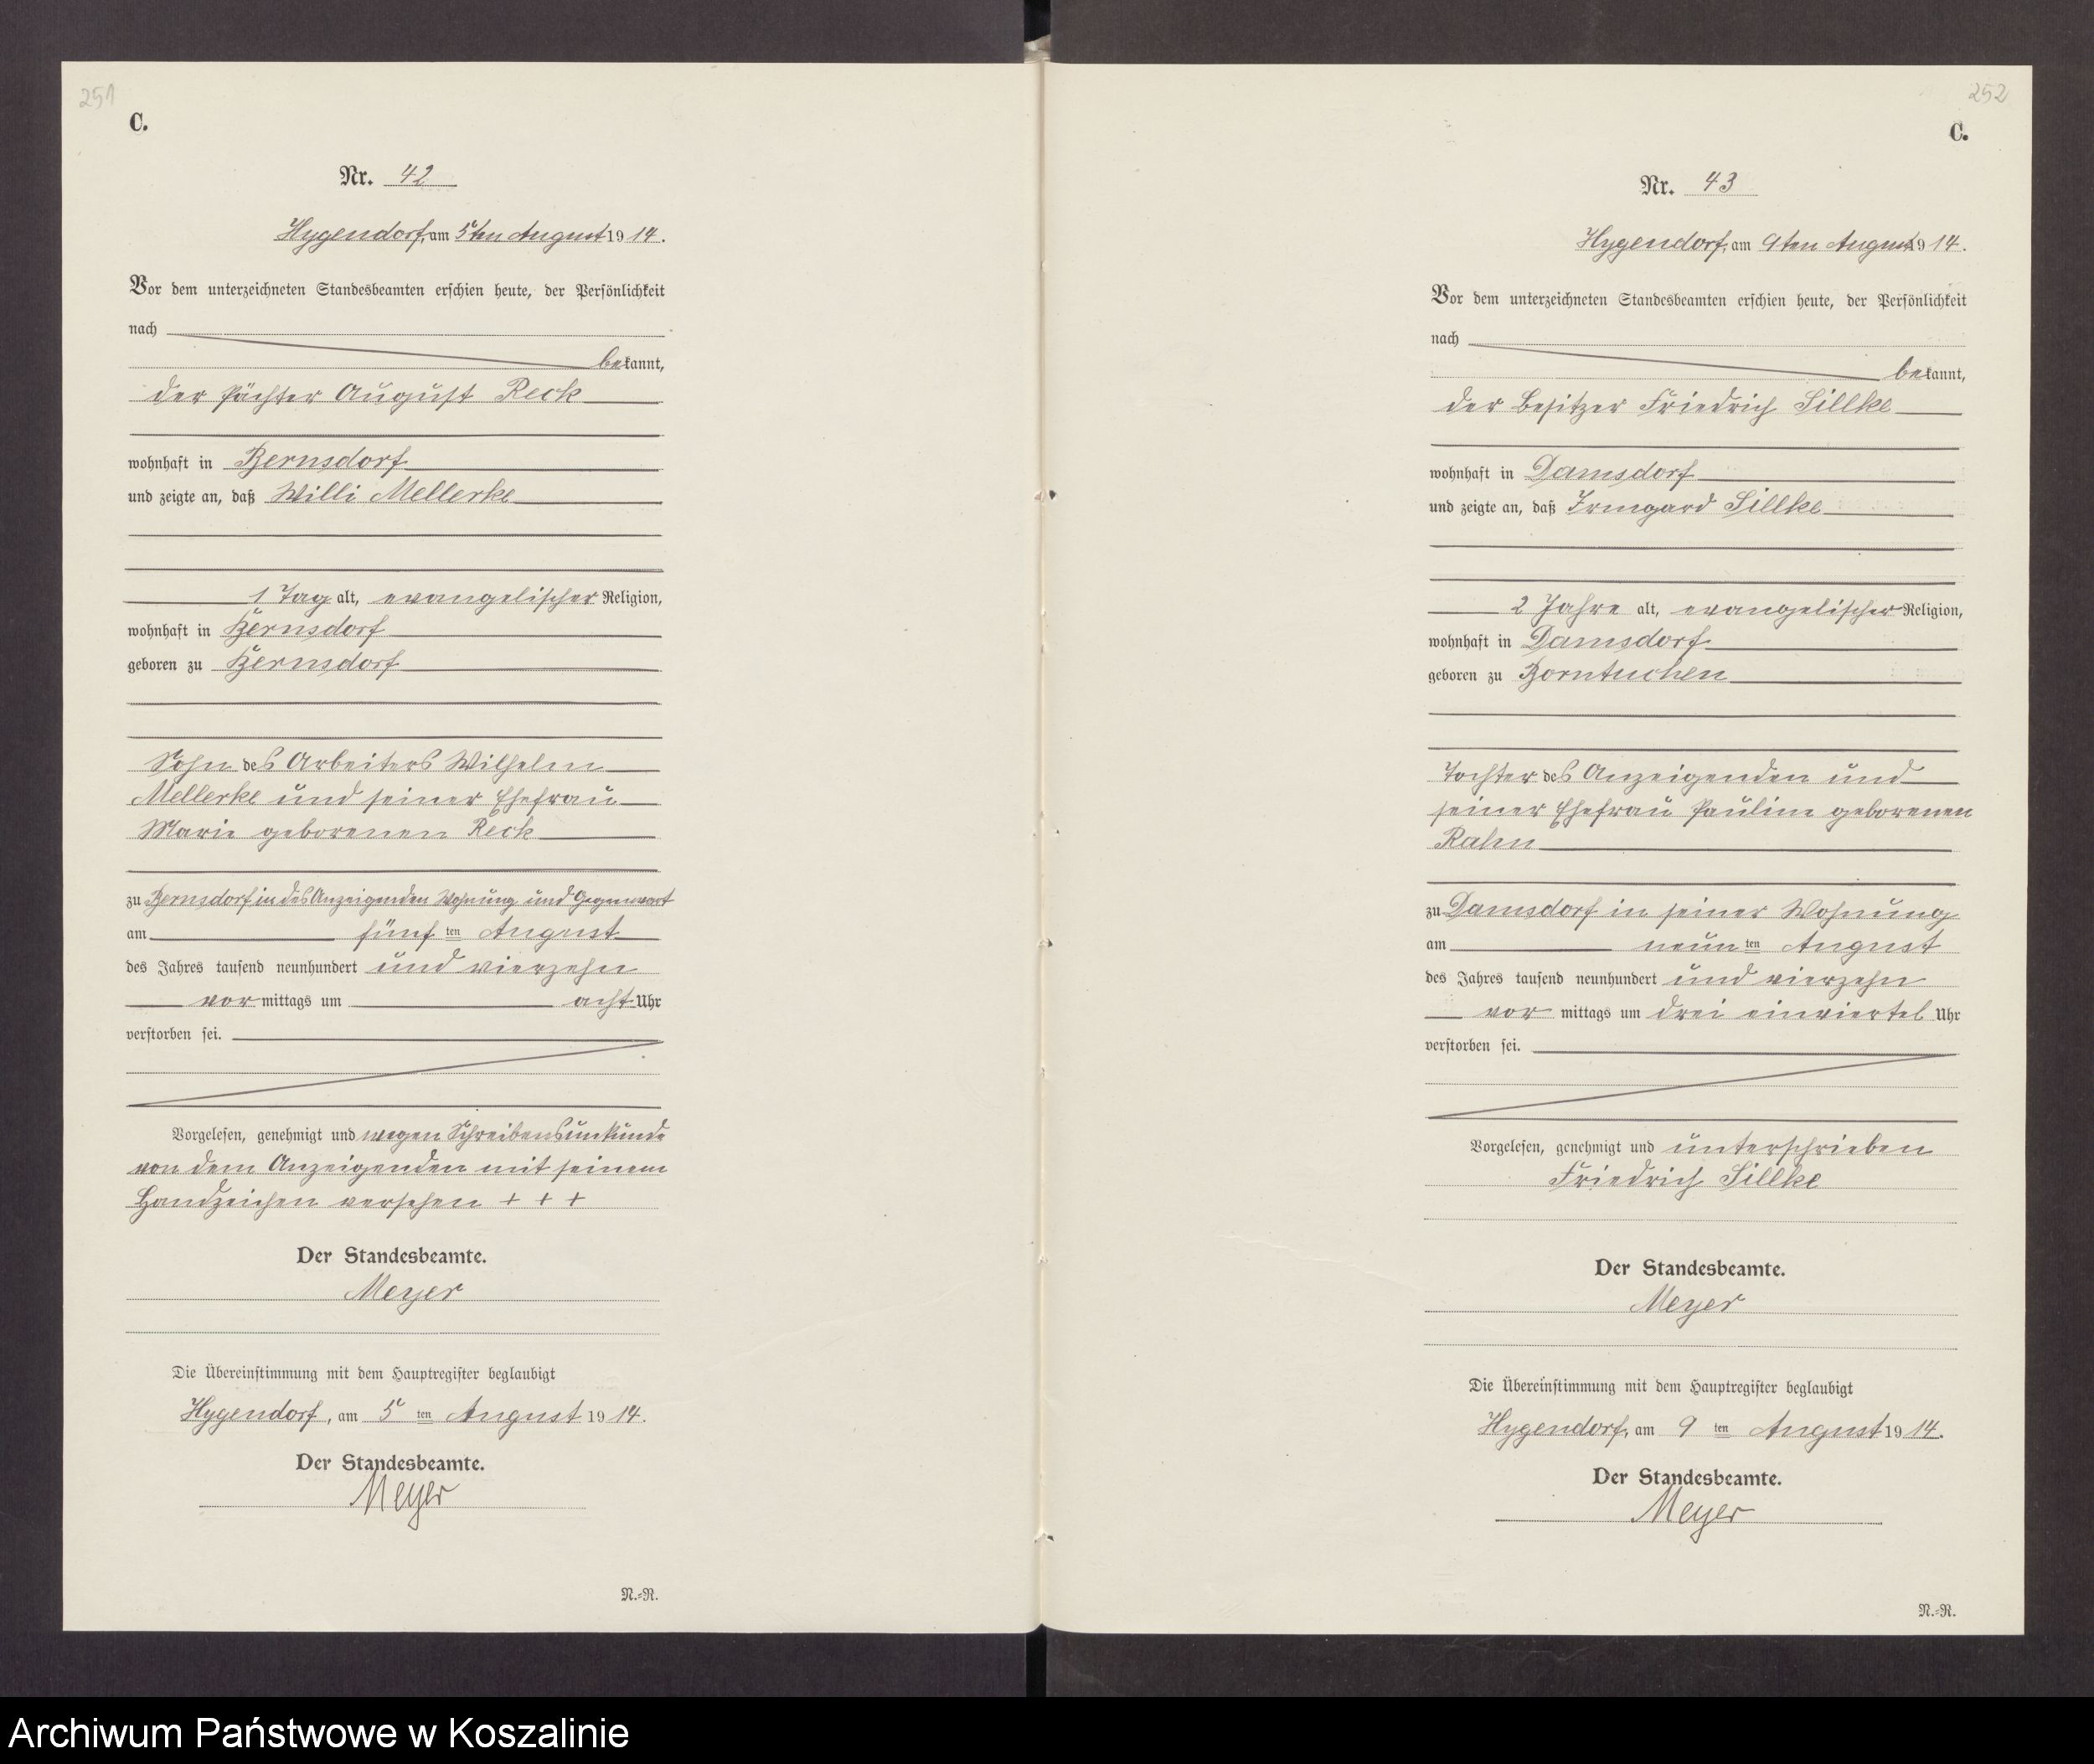 251
C.
Nr. 42
Hygendorf, am 5ten August 1914.
Vor dem unterzeichneten Standesbeamten erschien heute, der Persönlichkeit
nach
bekannt,
der Pächter August Reck
wohnhaft in Bernsdorf
und zeigte an, daß Willi Mellerke
1 Tag alt, evangelischer Religion,
wohnhaft in Bernsdorf
geboren zu Bernsdorf
Sohn des Arbeiters Wilhelm
Mellerke und seiner Ehefrau
Marie geborenen Reck
zu Bernsdorf in des Anzeigenden Wohnung und Gegenwart
am fünf ten August
des Jahres tausend neunhundert und vierzehn
vor mittags um acht Uhr
verstorben sei.
Vorgelesen, genehmigt und wegen Schreibensunkunde
von dem Anzeigenden mit seinem
Handzeichen versehen + + +
Der Standesbeamte.
Meyer
Die Übereinstimmung mit dem Hauptregister beglaubigt
Hygendorf, am 5 ten August 1914.
Der Standesbeamte.
Meyer
N.=R.
252
C.
Nr. 43
Hygendorf, am 9ten August 1914.
Vor dem unterzeichneten Standesbeamten erschien heute, der Persönlichkeit
nach
bekannt,
der Besitzer Friedrich Sillke
wohnhaft in Damsdorf
und zeigte an, daß Irmgard Sillke
2 Jahre alt, evangelischer Religion,
wohnhaft in Damsdorf
geboren zu Borntuchen
Tochter des Anzeigenden und
seiner Ehefrau Pauline geborenen
Rahn
zu Damsdorf in seiner Wohnung
am neun ten August
des Jahres tausend neunhundert und vierzehn
vor mittags um drei einviertel Uhr
verstorben sei.
Vorgelesen, genehmigt und unterschrieben
Friedrich Sillke
Der Standesbeamte.
Meyer
Die Übereinstimmung mit dem Hauptregister beglaubigt
Hygendorf, am 9 ten August 1914.
Der Standesbeamte.
Meyer
N.=R.
Archiwum Państwowe w Koszalinie